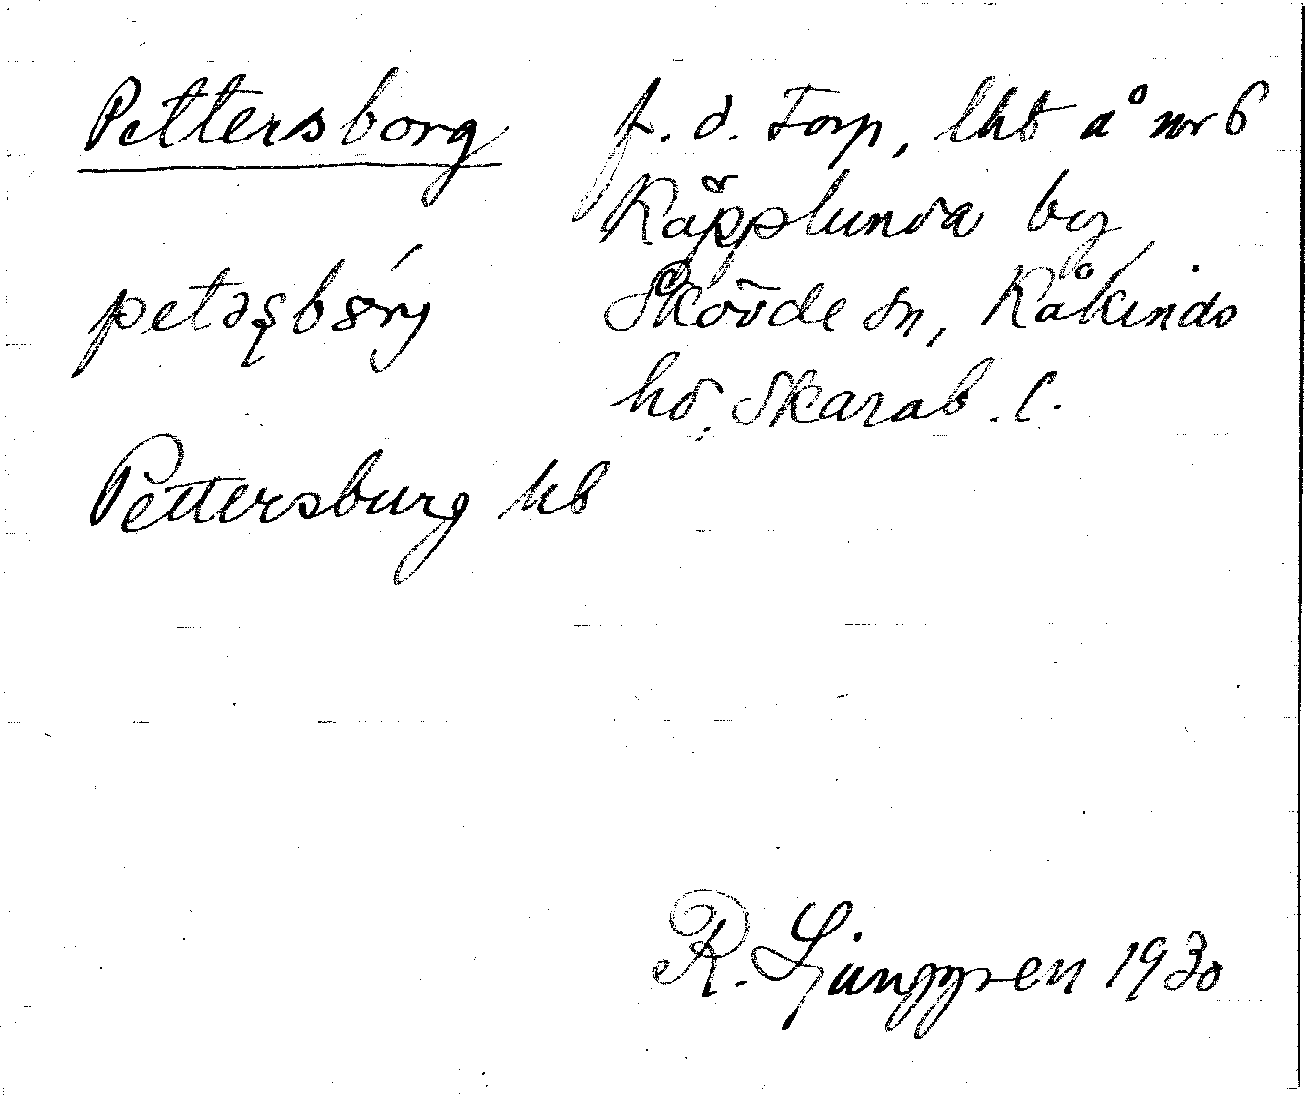 Pettersborg
f. d. torp, lht å nr 6
Käpplunda by
petəʂbɔrj
Skövde sn, Kåkinds
hd. Skarab. l.
Pettersburg kb
R. Ljunggren 1930